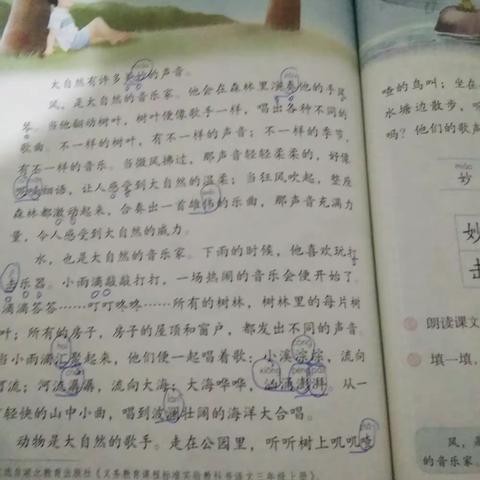 大自然有许多美妙的声音。
风，是大自然的音乐家。他会在森林里演奏他的手风
琴。当他翻动树叶，树叶便像歌手一样，唱出各种不同的
歌曲。不一样的树叶，有不一样的声音；不一样的季节，
有不一样的音乐。当微风拂过，那声音轻轻柔柔的，好像
呢喃细语，让人感受到大自然的温柔；当狂风吹起，整座
森林都激动起来，合奏出一首雄伟的乐曲，那声音充满力
量，令人感受到大自然的威力。
水，也是大自然的音乐家。下雨的时候，他喜欢玩打
击乐器。小雨滴敲敲打打，一场热闹的音乐会便开始了。
滴滴答答……叮叮咚咚……所有的树林，树林里的每片树
叶；所有的房子，房子的屋顶和窗户，都发出不同的声音。
当小雨滴汇聚起来，他们便一起唱着歌：小溪淙淙，流向
河流；河流潺潺，流向大海；大海哗哗，汹涌澎湃。从一
首轻快的山中小曲，唱到波澜壮阔的海洋大合唱。
动物是大自然的歌手。走在公园里，听听树上叽叽喳
选自湖北教育出版社《义务教育课程标准实验教科书语文三年级上册》
喳的鸟叫；坐在
水塘边散步，
吗？他们的歌声
miào
妙
妙
击
朗读课文
填一填，
风，
的音乐家。